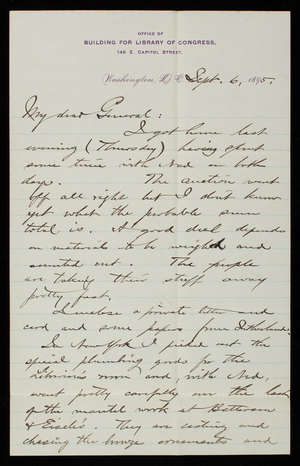 OFFICE OF
BUILDING FOR LIBRARY OF CONGRESS,
145 E. CAPITOL STREET.
Washington, D. C. Sept. 6, 1895.
My dear General:
I got home last
evening (Thursday) having spent
some time with Ned on both
days. The auction went
off all right but I don't know
yet what the probable sum
total is. A good deal depends
on materials to be weighed and
counted out. The people
are taking their stuff away
pretty fast.
I enclose a private letter and
card and some papers from
In New York I picked out the
special plumbing goods for the
Librarians room and, with Ned,
went pretty carefully over the
of the mantel work at Batterson
& Eisele's. They are casting and
chasing the bronze ornaments and